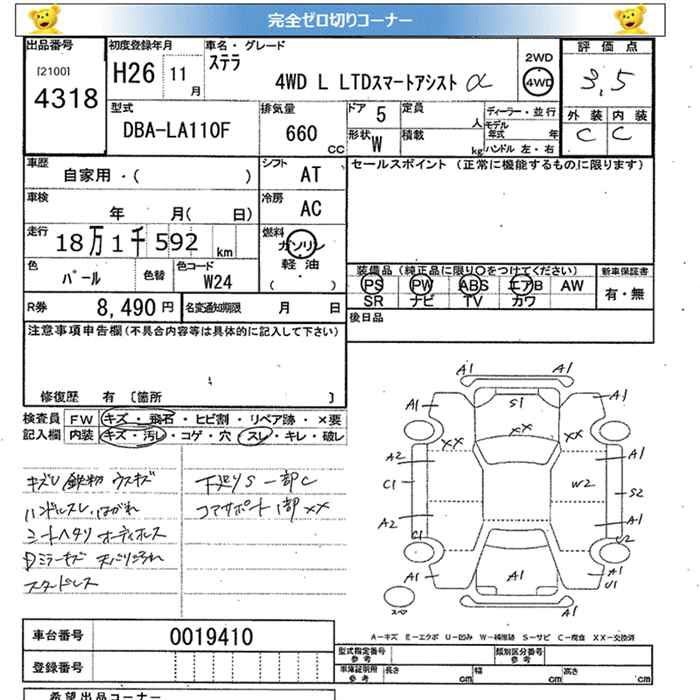 完全ゼロ切りコーナー
出品番号 初度登録年月 車名・グレード 2WD 評価点
[2100] 4318 H26 11月 ステラ 4WD L LTDスマートアシスト α 4WD 3.5
型式 排気量 ドア 5 定員 人 ディーラー・並行 外装 内装
DBA-LA110F 660 CC 形状 W 積載 kg モデル年式 年 ハンドル 左・右 C C
車歴 シフト セールスポイント (正常に機能するものに限ります)
自家用・( ) AT
車検 冷房
年 月( 日) AC
走行 燃料
18万1千592 km ガソリン
軽油
( ・ )
色 色替 色コード 装備品 (純正品に限り○をつけてください) 新車保証書
パール W24 PS PW ABS エアB AW 有・無
SR ナビ TV カワ
R券 8,490円 名変通知期限 月 日 後日品
注意事項申告欄(不具合内容等は具体的に記入して下さい)
修復歴 有 [箇所 ]
検査員 FW キズ・飛石・ヒビ割・リペア跡・×要
記入欄 内装 キズ・汚レ・コゲ・穴・スレ・キレ・破レ
キズU 鉄粉 ウスキズ 下廻りS 一部C
ハンドルスレ、はがれ コアサポート 1部 XX
シートヘタリ オーディオレス
Dミラーキズ 天バリ汚れ
スタッドレス
A1 A1
A1 S1 A1
XX XX XX
A2 A1
C1 W2 S2
A2 A1
C1 U2
A1 A1 A1
U1
スペア A1
A-キズ E-エクボ U-凹み W-補修跡 S-サビ C-腐食 XX-交換済
車台番号 0019410
型式指定番号 参考 類別区分番号 参考
登録番号 車庫証明所 参考 長さ cm 幅 cm 高さ cm
希望出品コーナー